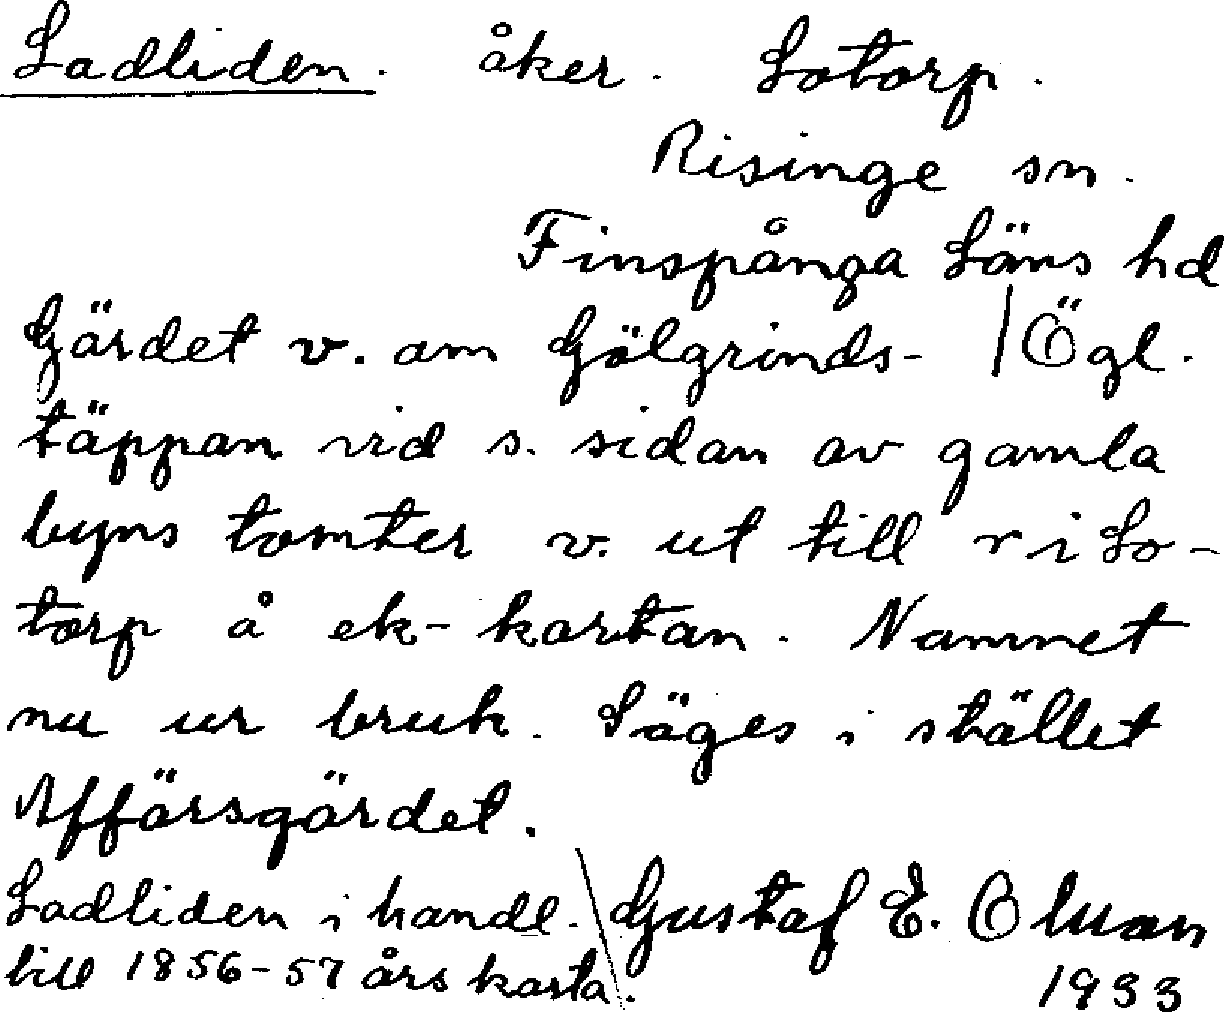 Ladliden. åker. Lotorp.
Risinge sn.
Finspånga Läns hd
Gärdet v. om Gölgrinds- /Ögl.
täppan vid s. sidan av gamla
byns tomter v. ut till r i Lo-
torp å ek-kartan. Namnet
nu ur bruk. Säges i stället
Affärsgärdet.
Ladliden i handl.
till 1856-57 års karta.
Gustaf E. Olman
1933